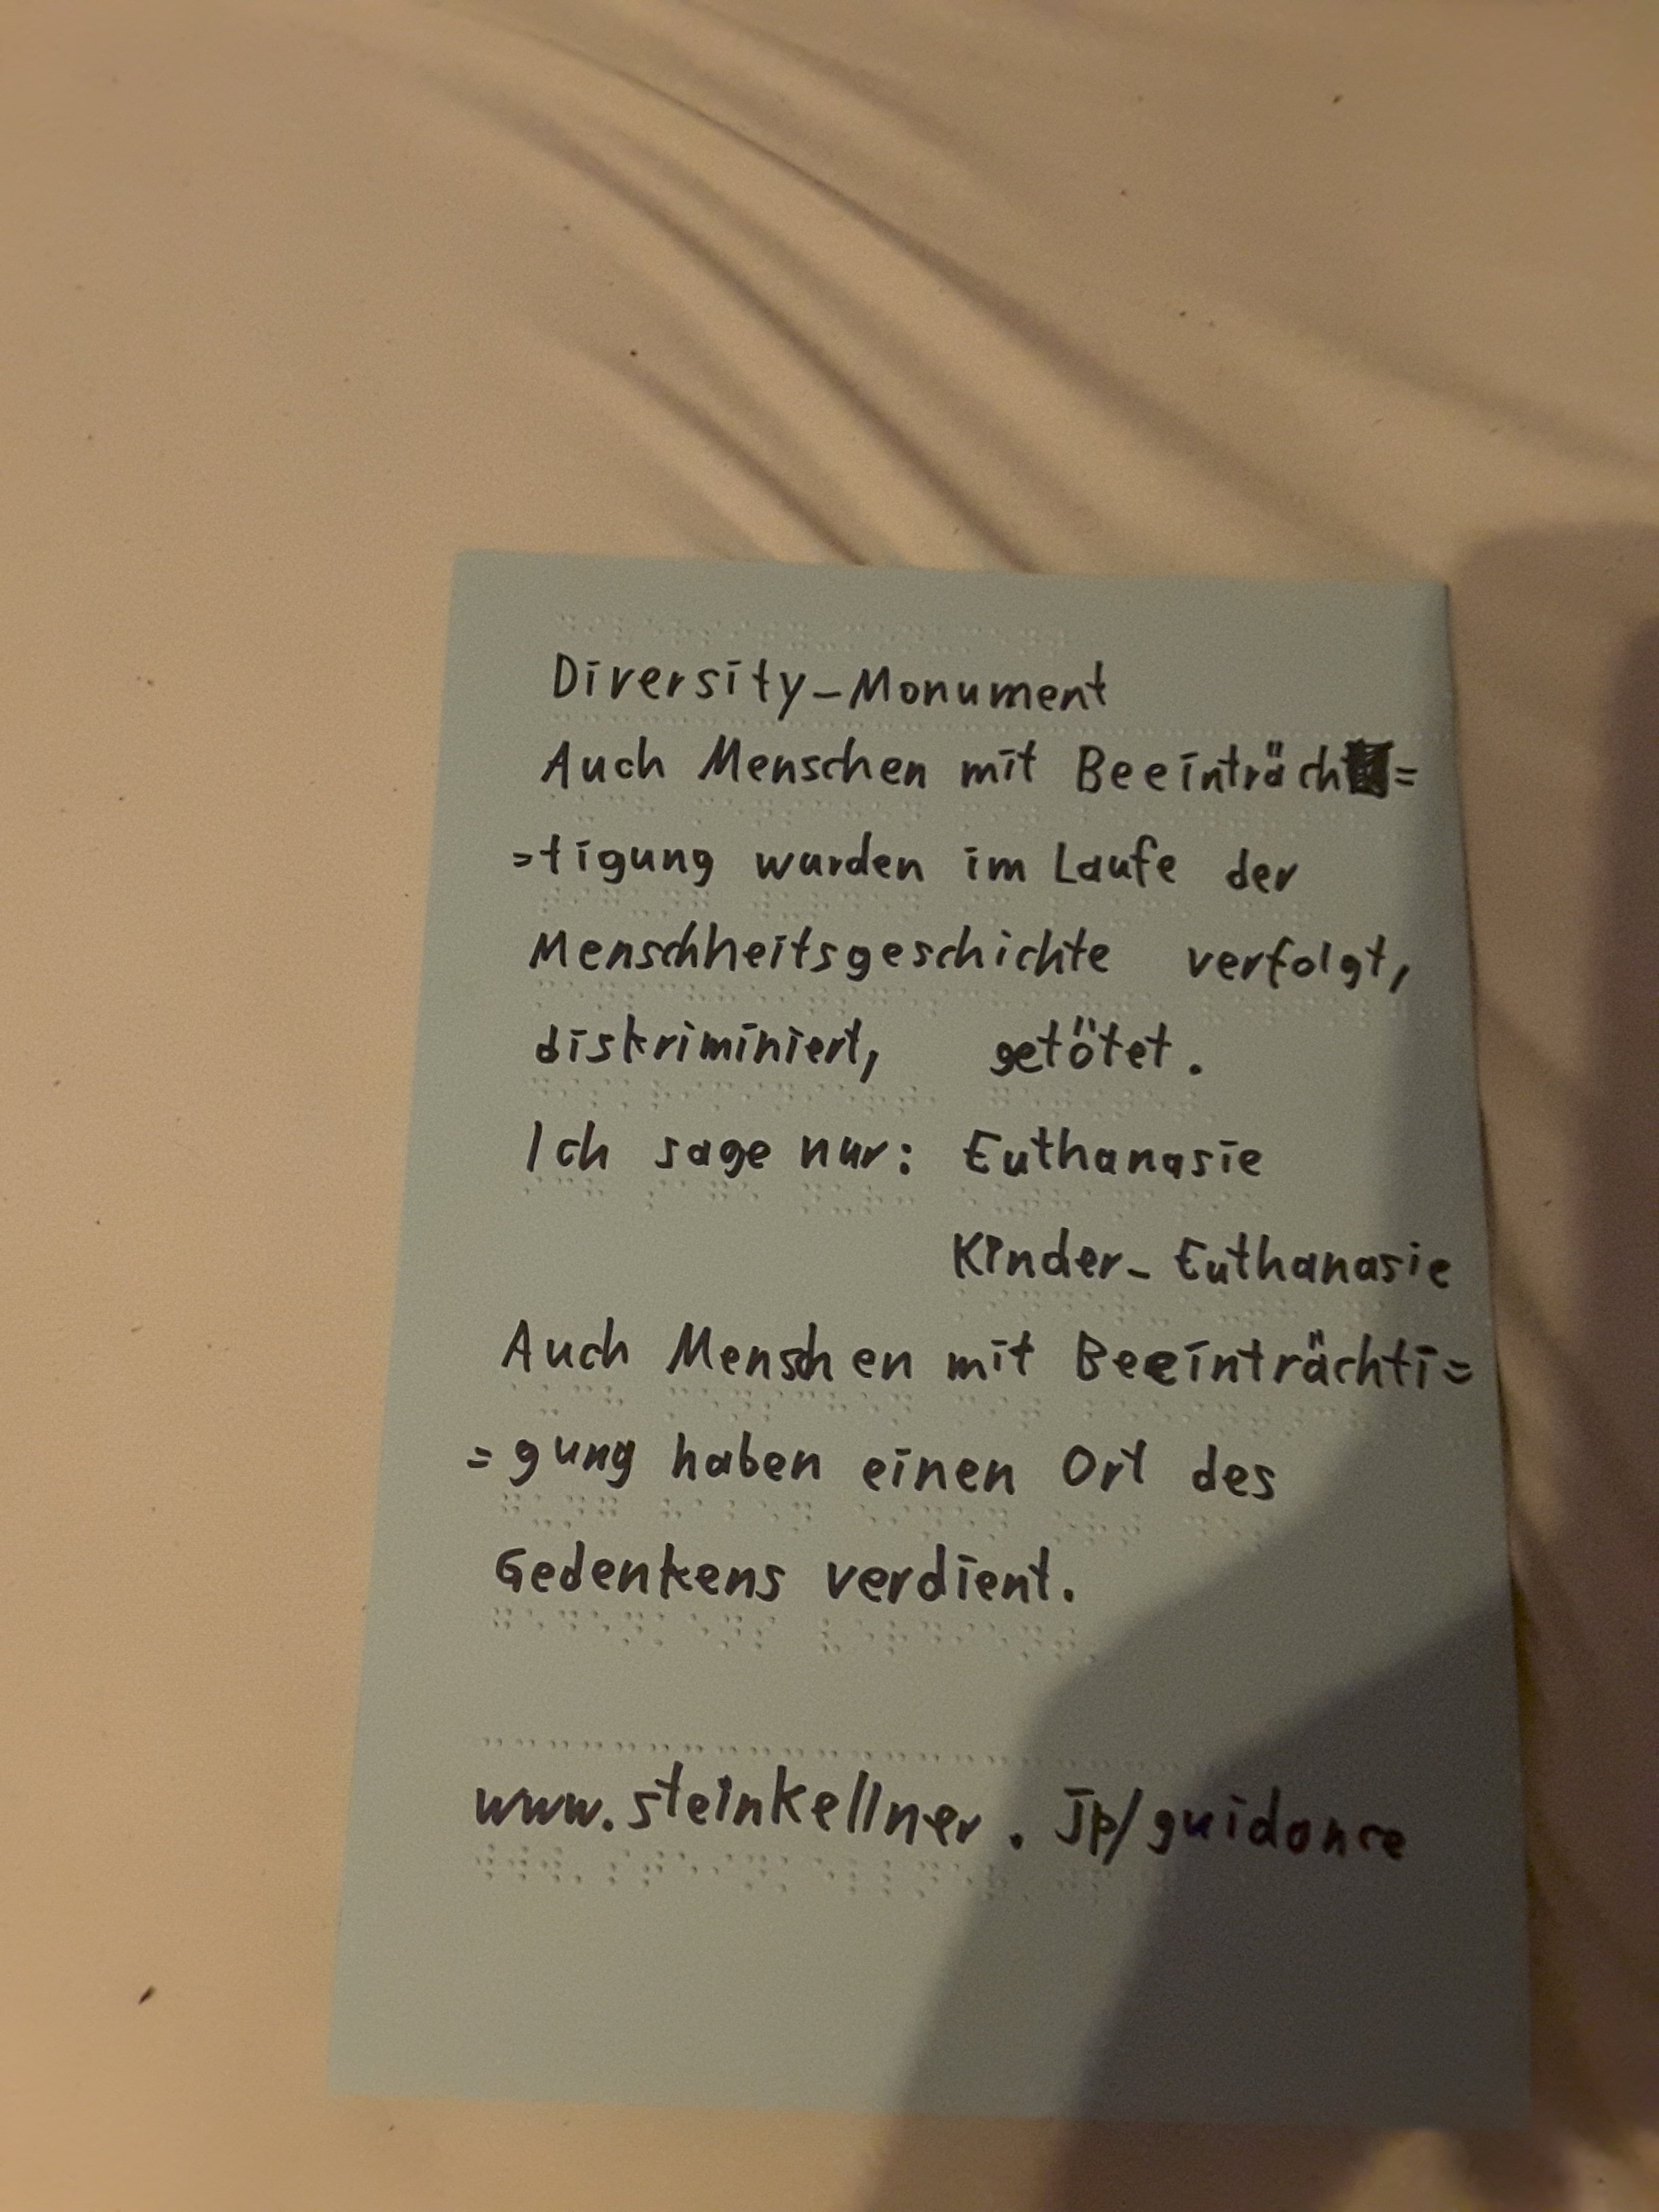 Diversity-Monument
Auch Menschen mit Beeinträch=
=tigung wurden im Laufe der
Menschheitsgeschichte verfolgt,
diskriminiert, getötet.
Ich sage nur: Euthanasie
Kinder-Euthanasie
Auch Menschen mit Beeinträchti=
=gung haben einen Ort des
Gedenkens verdient.
www.steinkellner.jp/guidance